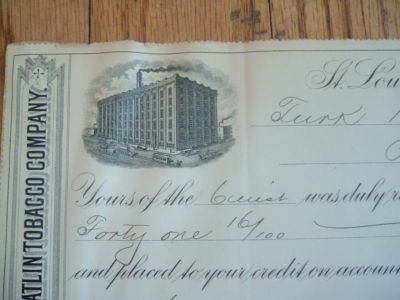 ATLIN TOBACCO COMPANY.
St. Lou
Turk
Yours of the was duly r
Forty one 16/100
and placed to your credit on accoun